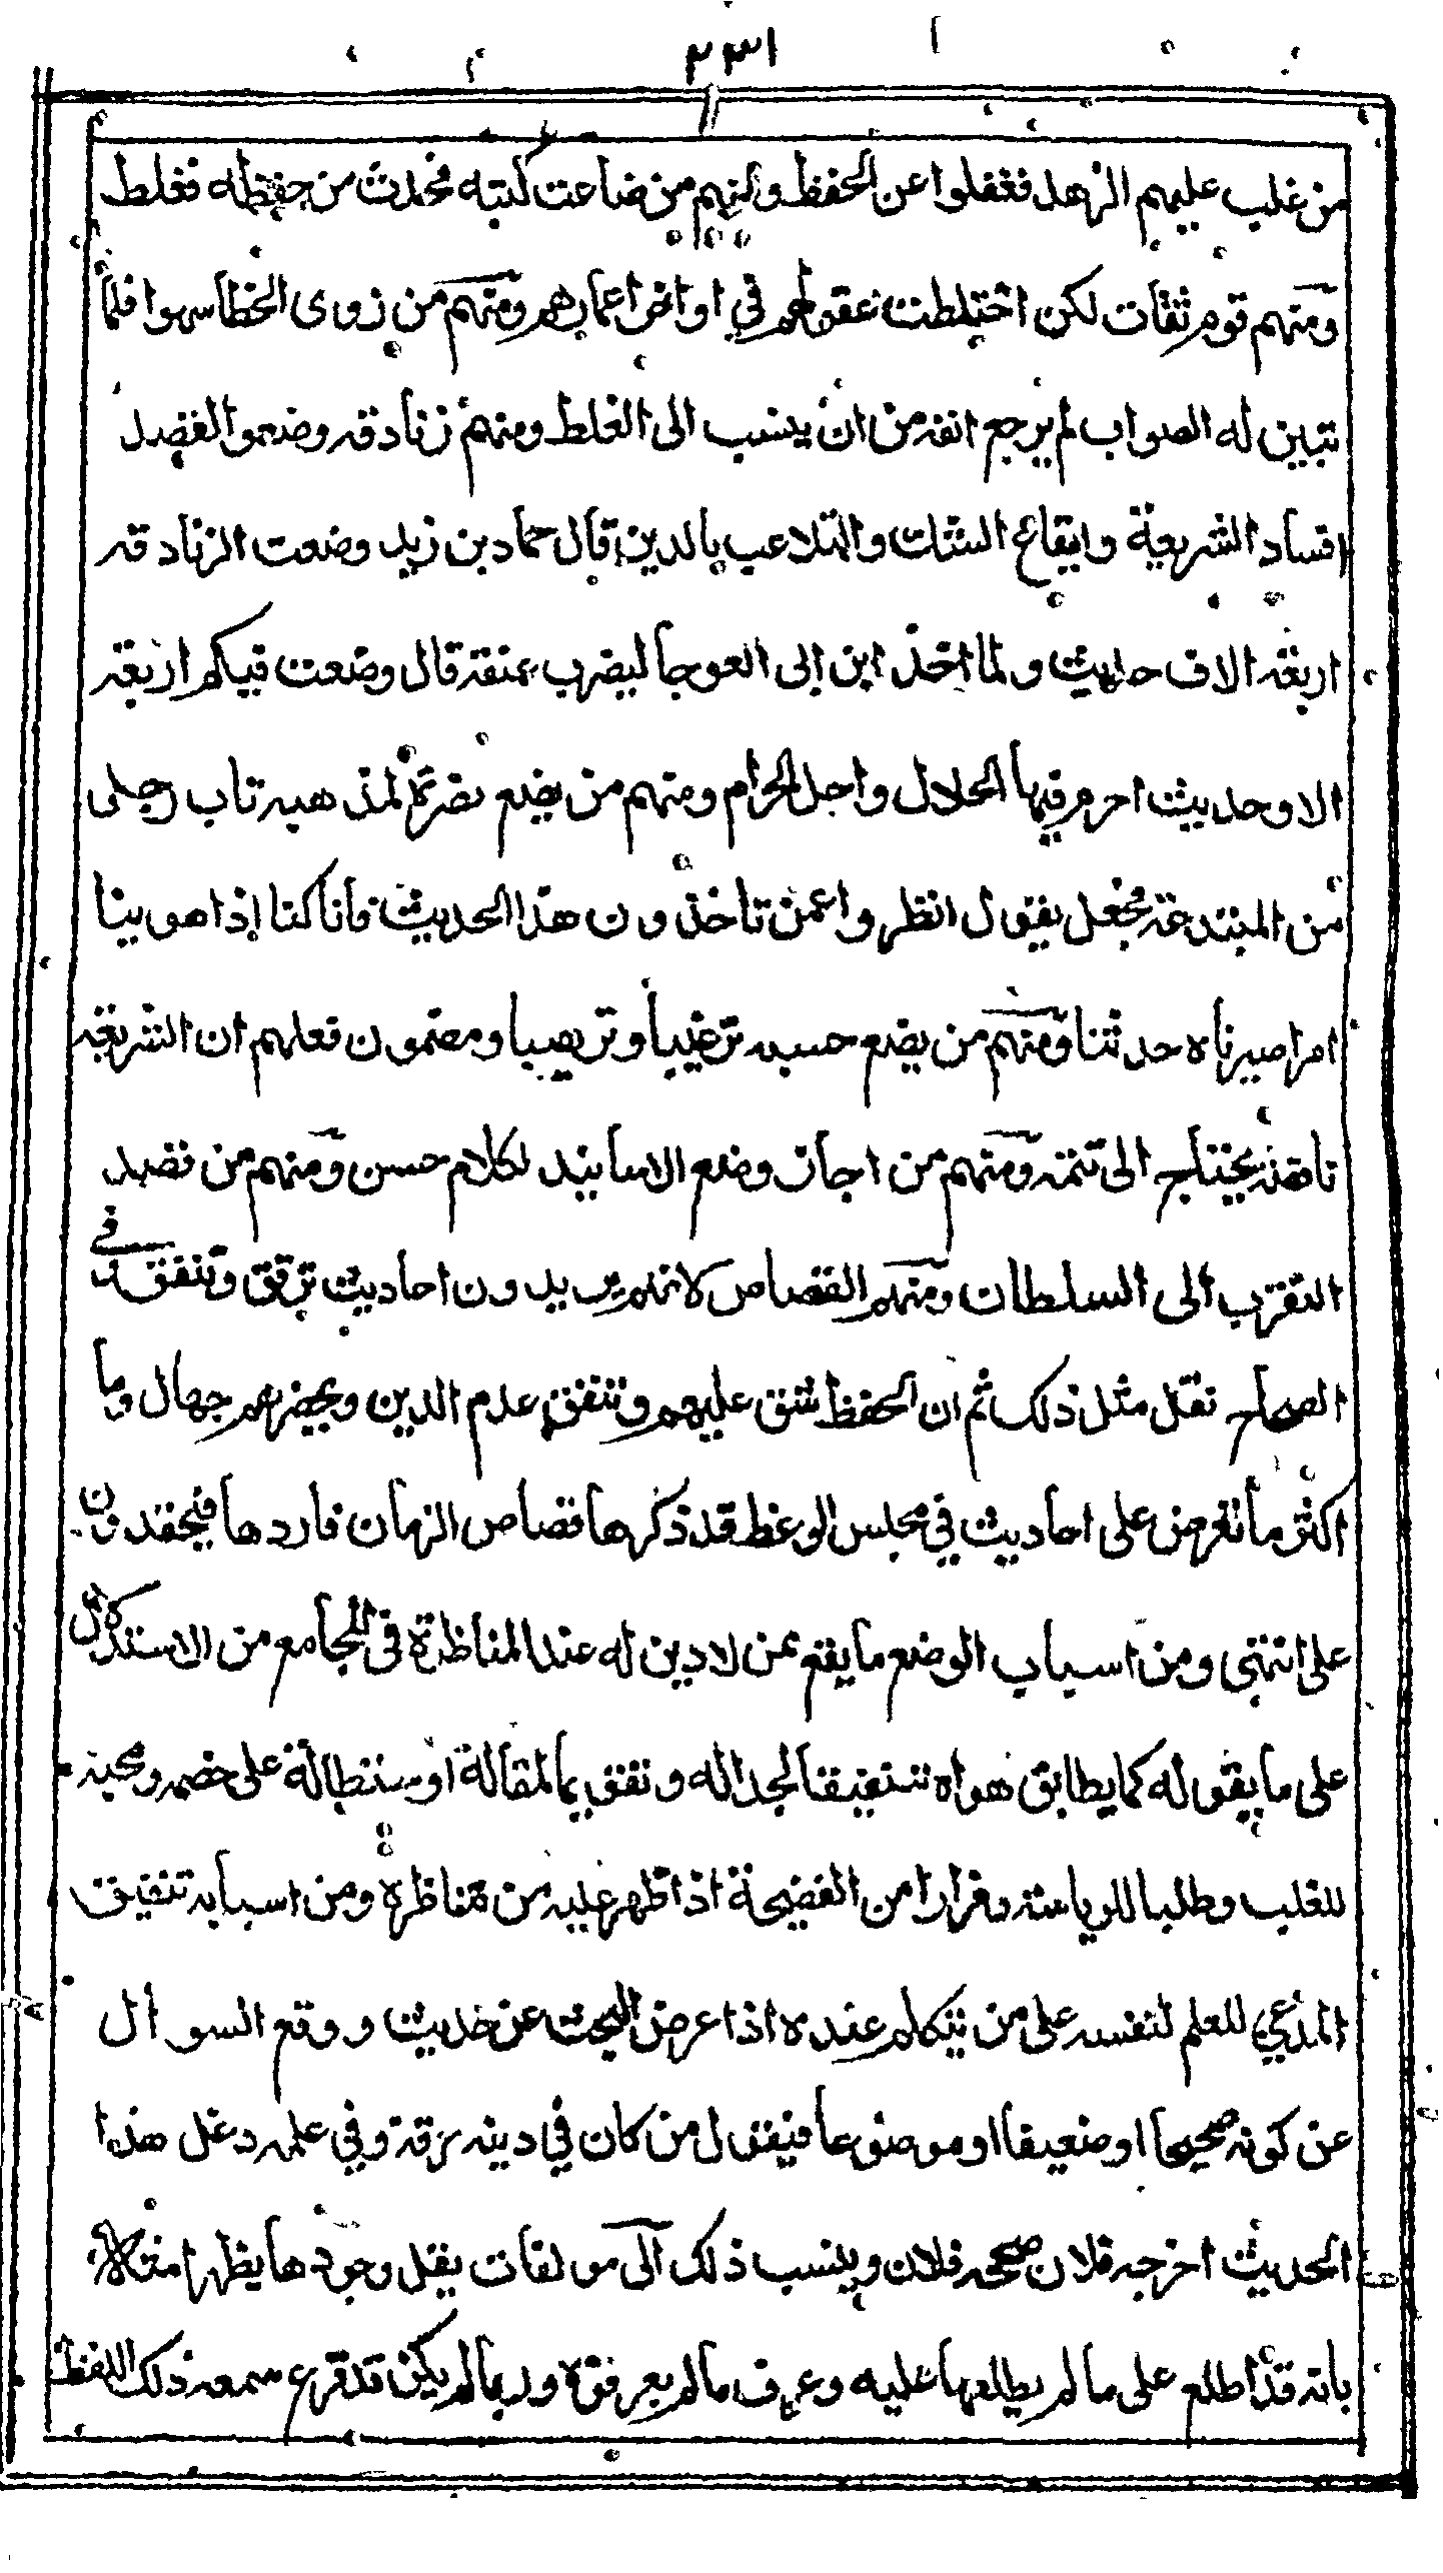 ٢٣١
من غلب عليهم الزهد فغفلوا عن الحفظ ومنهم من ضاعت كتبه فحدث من حفظه فغلط
ومنهم قوم ثقات لكن اختلطت عقولهم في اواخر اعمارهم ومنهم من روى الخطا سهوا فلما
تبين له الصواب لم يرجع انفه من ان ينسب الى الغلط ومنهم زنادقه وضعوا لقصد
افساد الشريعة وايقاع الشك والتلاعب بالدين قال حماد بن زيد وضعت الزنادقه
اربعه الاف حديث ولما اخذ ابن ابى العوجا ليضرب عنقه قال وضعت فيكم اربعه
الاو حديث احرم فيها الحلال واحل الحرام ومنهم من يضع نصرة لمذهبه تاب رجلى
من المبتدعه فجعل يقول انظر واعمن تاخذون هذا الحديث فانا كنا إذا هوينا
امرا صيرناه حدثنا ومنهم من يضع حسبه ترغيبا وترهيبا ومضمون فعلهم ان الشريعه
ناقصه يحتاج الى تتمه ومنهم من اجاز وضع الاسانيد لكلام حسن ومنهم من قصد
التقرب الى السلطان ومنهم القصاص لانهم يريدون احاديث ترقق وتنفق في
الصحاح نقل مثل ذلك ثم ان الحفظ شق عليهم ويتفق عدم الدين ويحضرهم جهال وما
اكثر ما تعرض على احاديث في مجلس الوعظ قد ذكرها قصاص الزمان فاردها فيحقدون
على انتهى ومن اسباب الوضع ما يقع ممن لا دين له عند المناظرة فى المجامع من الاستدلال
على ما يقوله كما يطابق هواه تنفيقا لجداله ونفق بما لمقالة اوستطالة على خصمه ومحبة
للغلب وطلبا للرياسته وفرارا من الفضيحة اذا ظهر عليه من مناظره ومن اسبابه تنفيق
المدعي للعلم لنفسه على من يتكلم عنده اذا عرض البحث عن حديث ووقع السوال
عن كونه صحيحا او ضعيفا او موضوعا فيقول من كان في دينه رقة وفي علمه دغل هذا
الحديث اخرجه فلان صححه فلان وينسب ذلك الى مولفات يقل وجودها يظهرا
بانه قد اطلع على ما لم يطلعها عليه وعرف ما لم يعرفوه وربما لم يكن قد قرع سمعه ذلك اللفظ